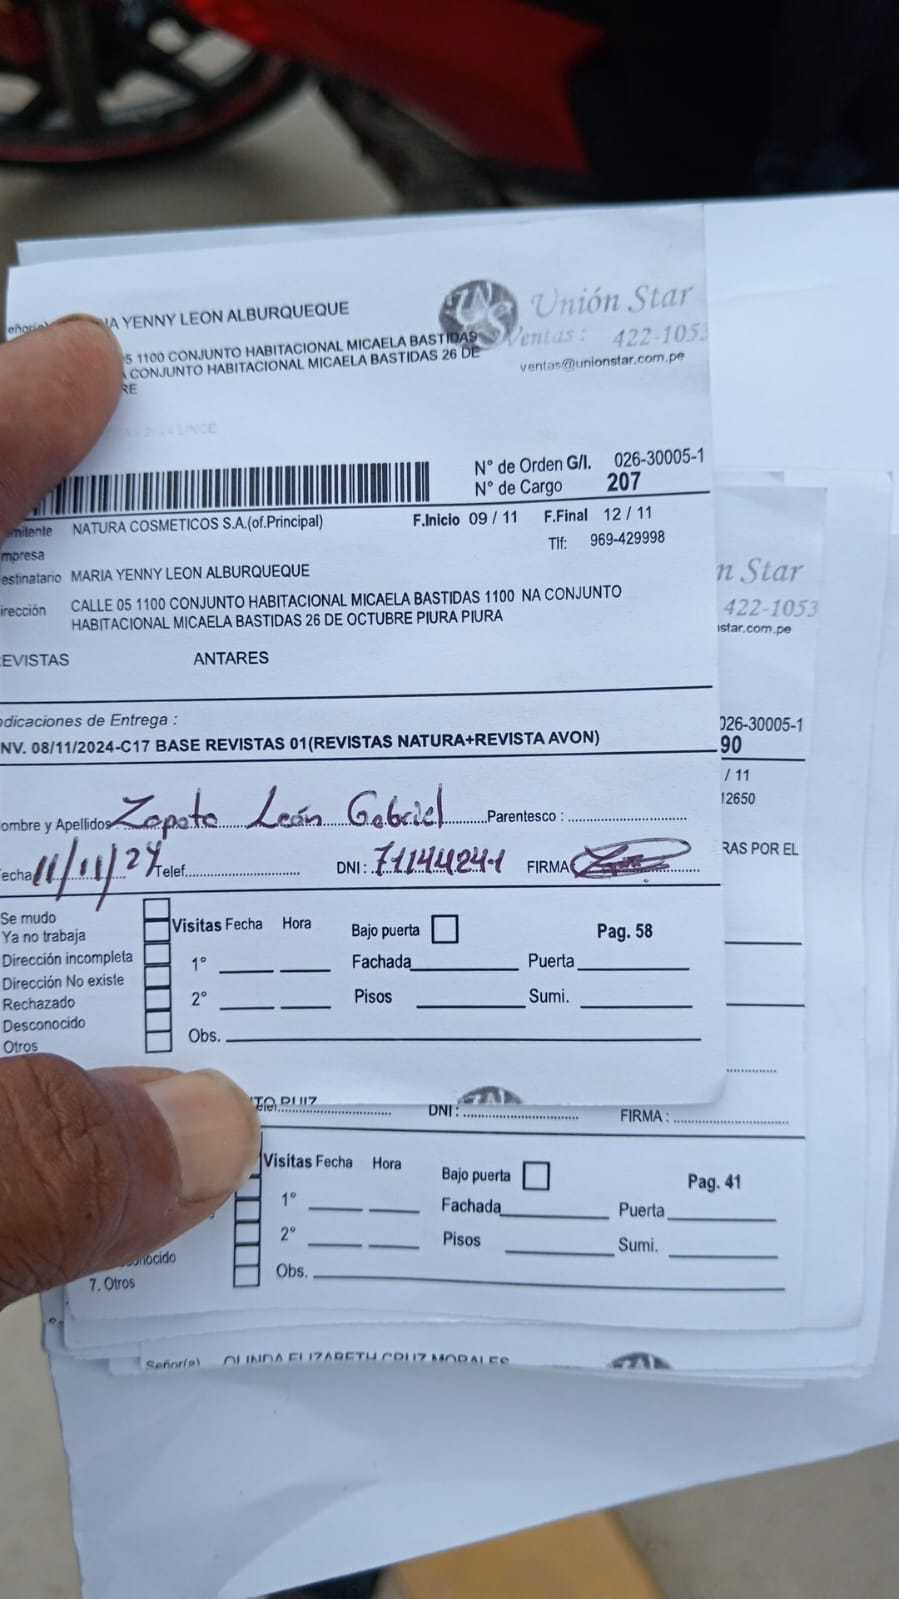 eñor(a) IA YENNY LEON ALBURQUEQUE
Unión Star
05 1100 CONJUNTO HABITACIONAL MICAELA BASTIDAS
Ventas: 422-1053
CONJUNTO HABITACIONAL MICAELA BASTIDAS 26 DE
RE
ventas@unionstar.com.pe
N° de Orden G/I. 026-30005-1
N° de Cargo 207
emitente NATURA COSMETICOS S.A.(of.Principal)
F.Inicio 09 / 11 F.Final 12 / 11
mpresa
Tlf: 969-429998
estinatario MARIA YENNY LEON ALBURQUEQUE
irección CALLE 05 1100 CONJUNTO HABITACIONAL MICAELA BASTIDAS 1100 NA CONJUNTO
HABITACIONAL MICAELA BASTIDAS 26 DE OCTUBRE PIURA PIURA
EVISTAS ANTARES
ndicaciones de Entrega :
NV. 08/11/2024-C17 BASE REVISTAS 01(REVISTAS NATURA+REVISTA AVON)
ombre y Apellidos Zapata León Gabriel Parentesco :
echa 11/11/24 Telef. DNI : 71144241 FIRMA
Se mudo
Ya no trabaja
Dirección incompleta
Dirección No existe
Rechazado
Desconocido
Otros
Visitas Fecha Hora
1°
2°
Obs.
Bajo puerta Pag. 58
Fachada Puerta
Pisos Sumi.
n Star
422-1053
star.com.pe
026-30005-1
90
/ 11
12650
RAS POR EL
TO RUIZ
DNI : FIRMA :
Visitas Fecha Hora
1°
2°
Obs.
Bajo puerta Pag. 41
Fachada Puerta
Pisos Sumi.
onocido
7. Otros
Señor(a) OLINDA ELIZABETH CRUZ MORALES